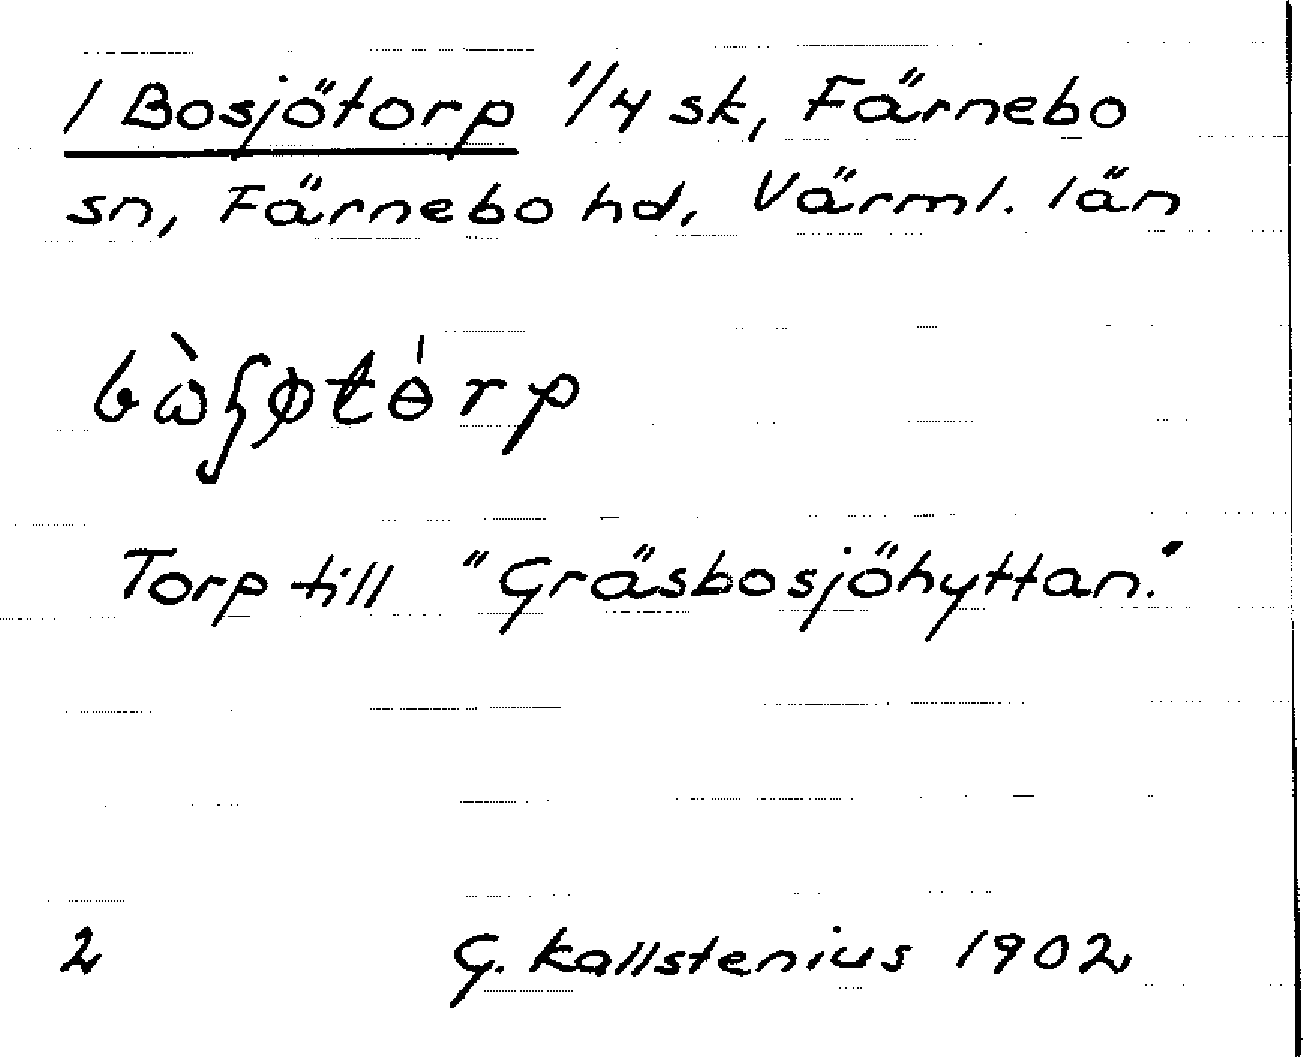 1 Bosjötorp 1/4 sk, Färnebo
sn, Färnebo hd, Värml. län
Torp till "Gräsbosjöhyttan."
2 G. Kallstenius 1902